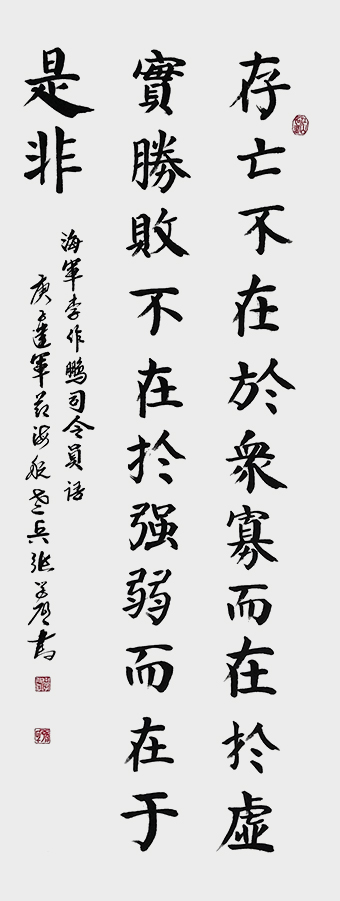 存亡不在於衆寡而在於虛
實勝敗不在於强弱而在于
是非
海軍李作鵬司令員語
庚子建軍節海航老兵張書